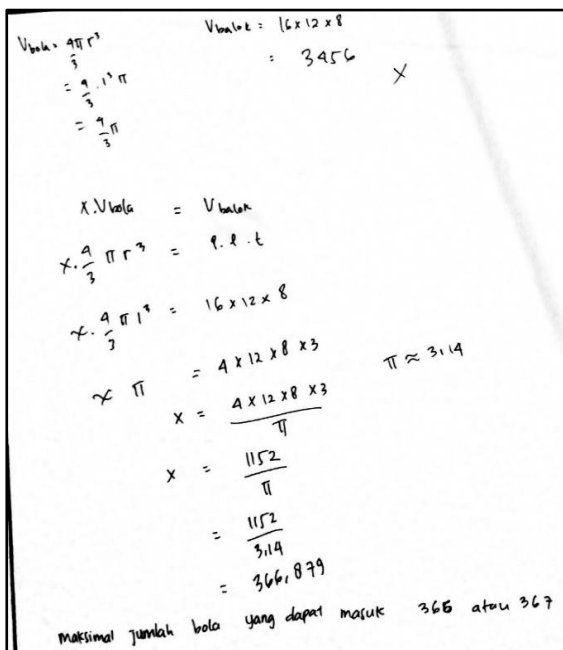 V bola = 4πr³/3
= 4/3 · 1³ π
= 4/3 π
V balok = 16 x 12 x 8
= 3456
X
x. V bola = V balok
x. 4/3 π r³ = p. l. t
x. 4/3 π 1³ = 16 x 12 x 8
x π = 4 x 12 x 8 x 3
π ≈ 3,14
x = 4 x 12 x 8 x 3 / π
x = 1152 / π
= 1152 / 3,14
= 366,879
maksimal jumlah bola yang dapat masuk 365 atau 367